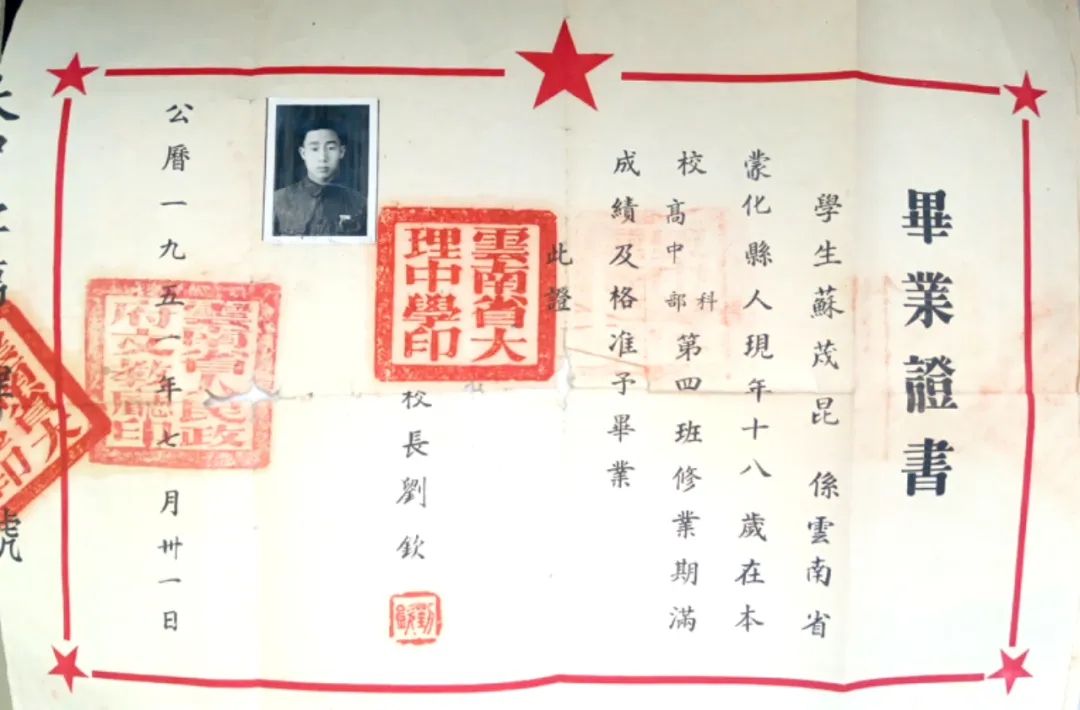 畢業證書
學生蘇茂昆 係雲南省
蒙化縣人現年十八歲在本
校高中部科第四班修業期滿
成績及格准予畢業
此證
雲南省大
理中學印
校長劉欽
劉欽
公曆一九五一年七月卅一日
雲南省人民政
府文教廳印
號